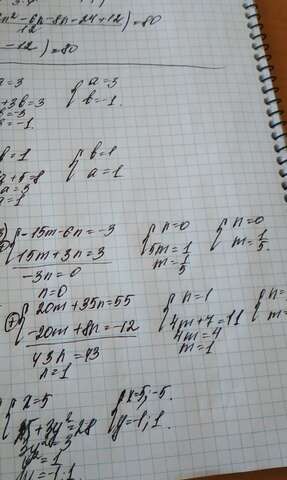 n² - 6n - 8n - 24 + 12) = 80
12
- 12) = 80
a = 3
+ 3b = 3
b = -3
= -1.
{ a = 3
b = -1.
b = 1
a + 5 = 8
a = 3
a = 1
{ b = 1
a = 1
3) { -15m - 6n = -3
15m + 3n = 3
-3n = 0
n = 0
{ n = 0
5m = 1
m = 1/5
{ n = 0
m = 1/5.
⊕ { 20m + 35n = 55
-20m + 8n = -12
43n = 43
n = 1
{ n = 1
4m + 7 = 11
4m = 4
m = 1
{ n =
m =
{ x = 5
+ 3y² = 28
3y² = 3
y² = 1
y = -1, 1
{ x = 5, -5.
y = -1, 1.